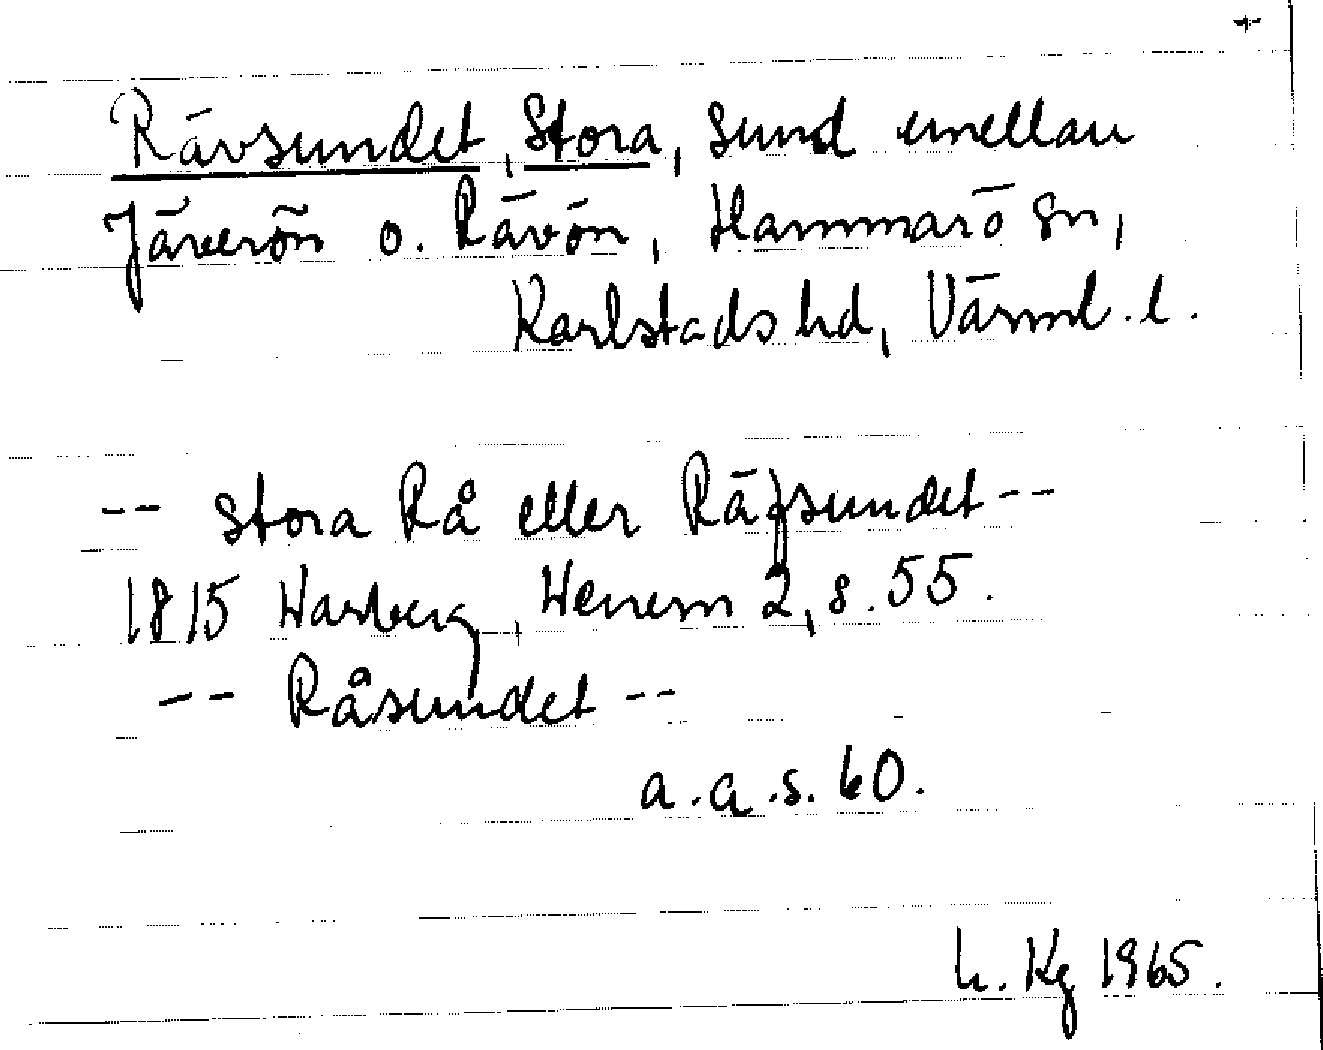 Rävsundet, Stora, sund emellan
Järerön o. Rävön, Hammarö sn,
Karlstads hd, Värml. l.
-- Stora Rå eller Räfsundet --
1815 Warberg, Wenern 2, s. 55.
-- Råsundet --
a.a.s. 60.
h. Kg 1965.